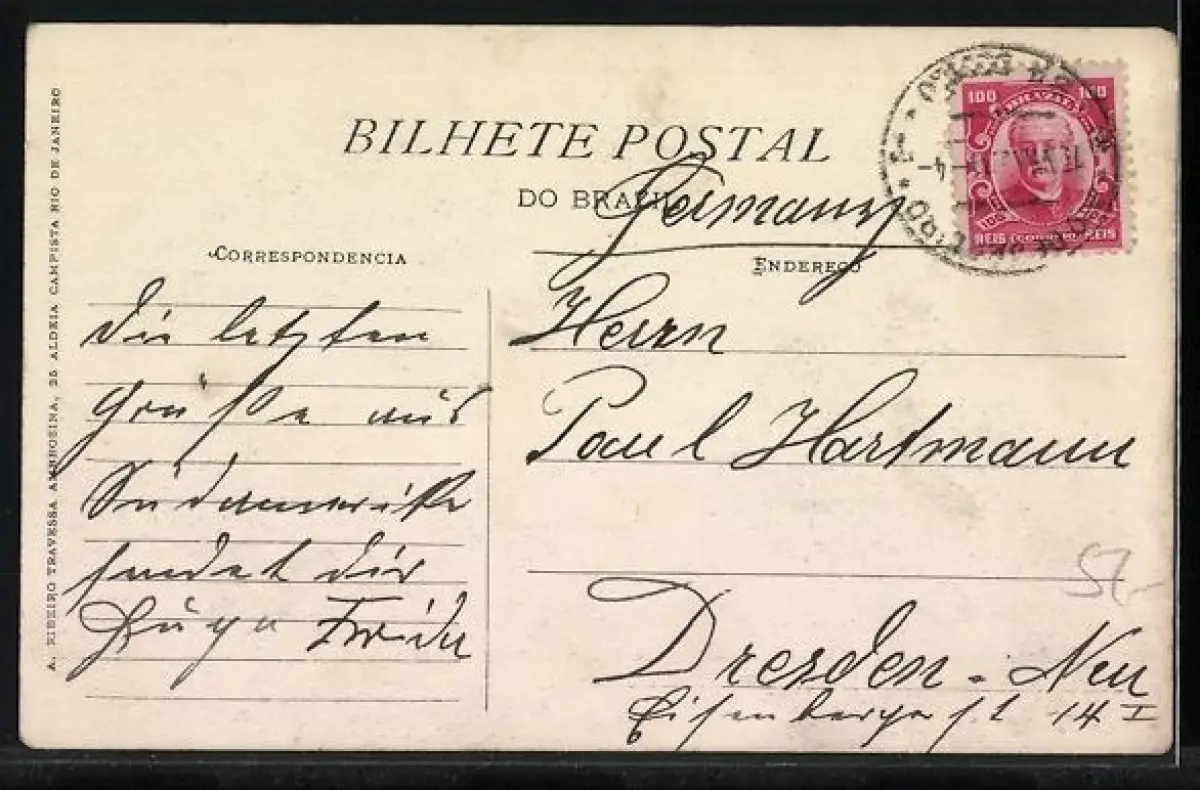 BILHETE POSTAL
DO BRAZIL
Germany
CORRESPONDENCIA
ENDEREÇO
Die letzten
Grüße aus
Südamerika
sendet dir
Hugo
Herrn
Paul Hartmann
Dresden-Neu
Eisenbergerst 14 I
A. RIBEIRO TRAVESSA AMBROSINA, 25 ALDEIA CAMPISTA RIO DE JANEIRO
100 BRAZIL 100
REIS CORREIO REIS